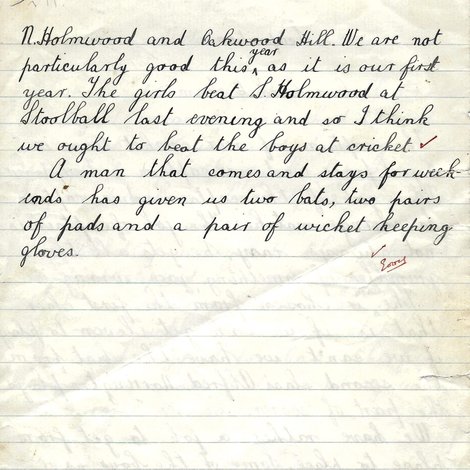 N. Holmwood and Oakwood Hill. We are not
particularly good this year as it is our first
year. The girls beat S Holmwood at
Stoolball last evening and so I think
we ought to beat the boys at cricket.
A man that comes and stays for week-
ends has given us two bats, two pairs
of pads and a pair of wicket keeping
gloves.
Good